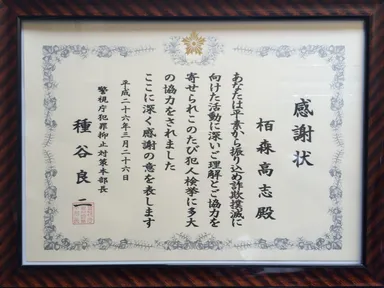 感謝状
栢森高志殿
あなたは平素から振り込め詐欺撲滅に
向けた活動に深いご理解とご協力を
寄せられこのたび犯人検挙に多大
の協力をされました
ここに深く感謝の意を表します
平成二十六年三月二十六日
警視庁犯罪抑止対策本部長
種谷良二